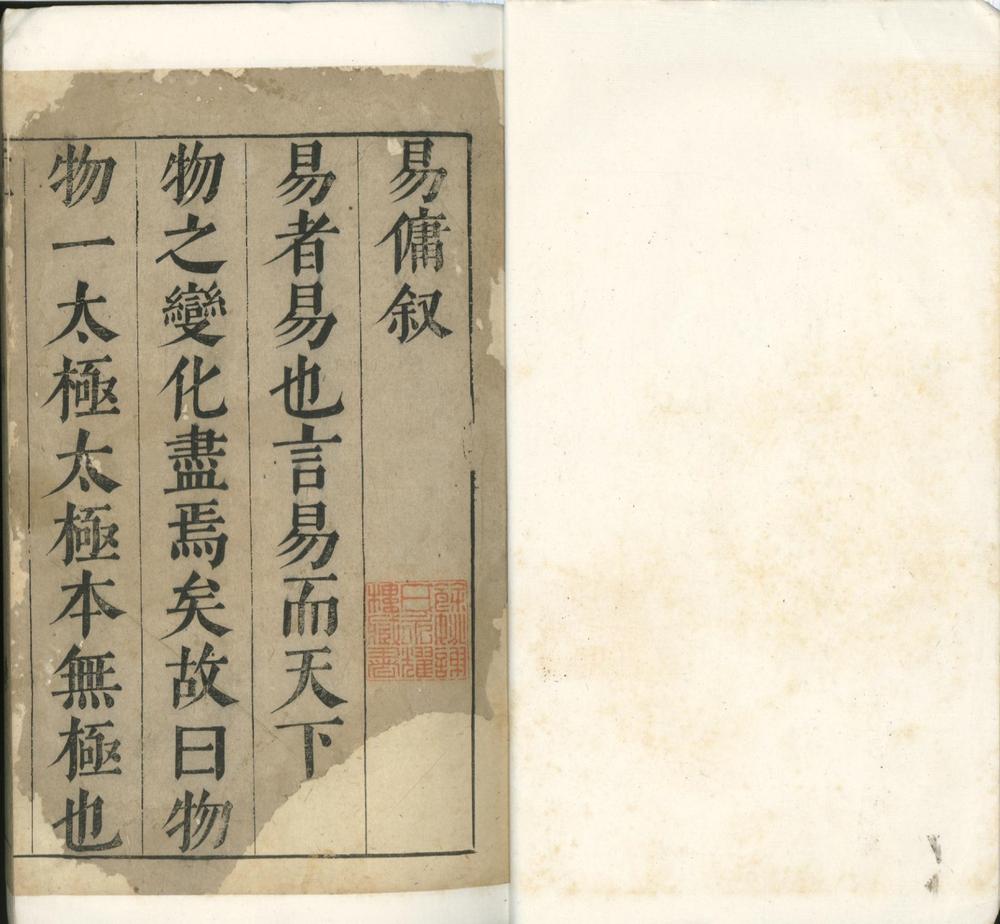 易傭叙
易者易也言易而天下
物之變化盡焉矣故曰物
物一太極太極本無極也